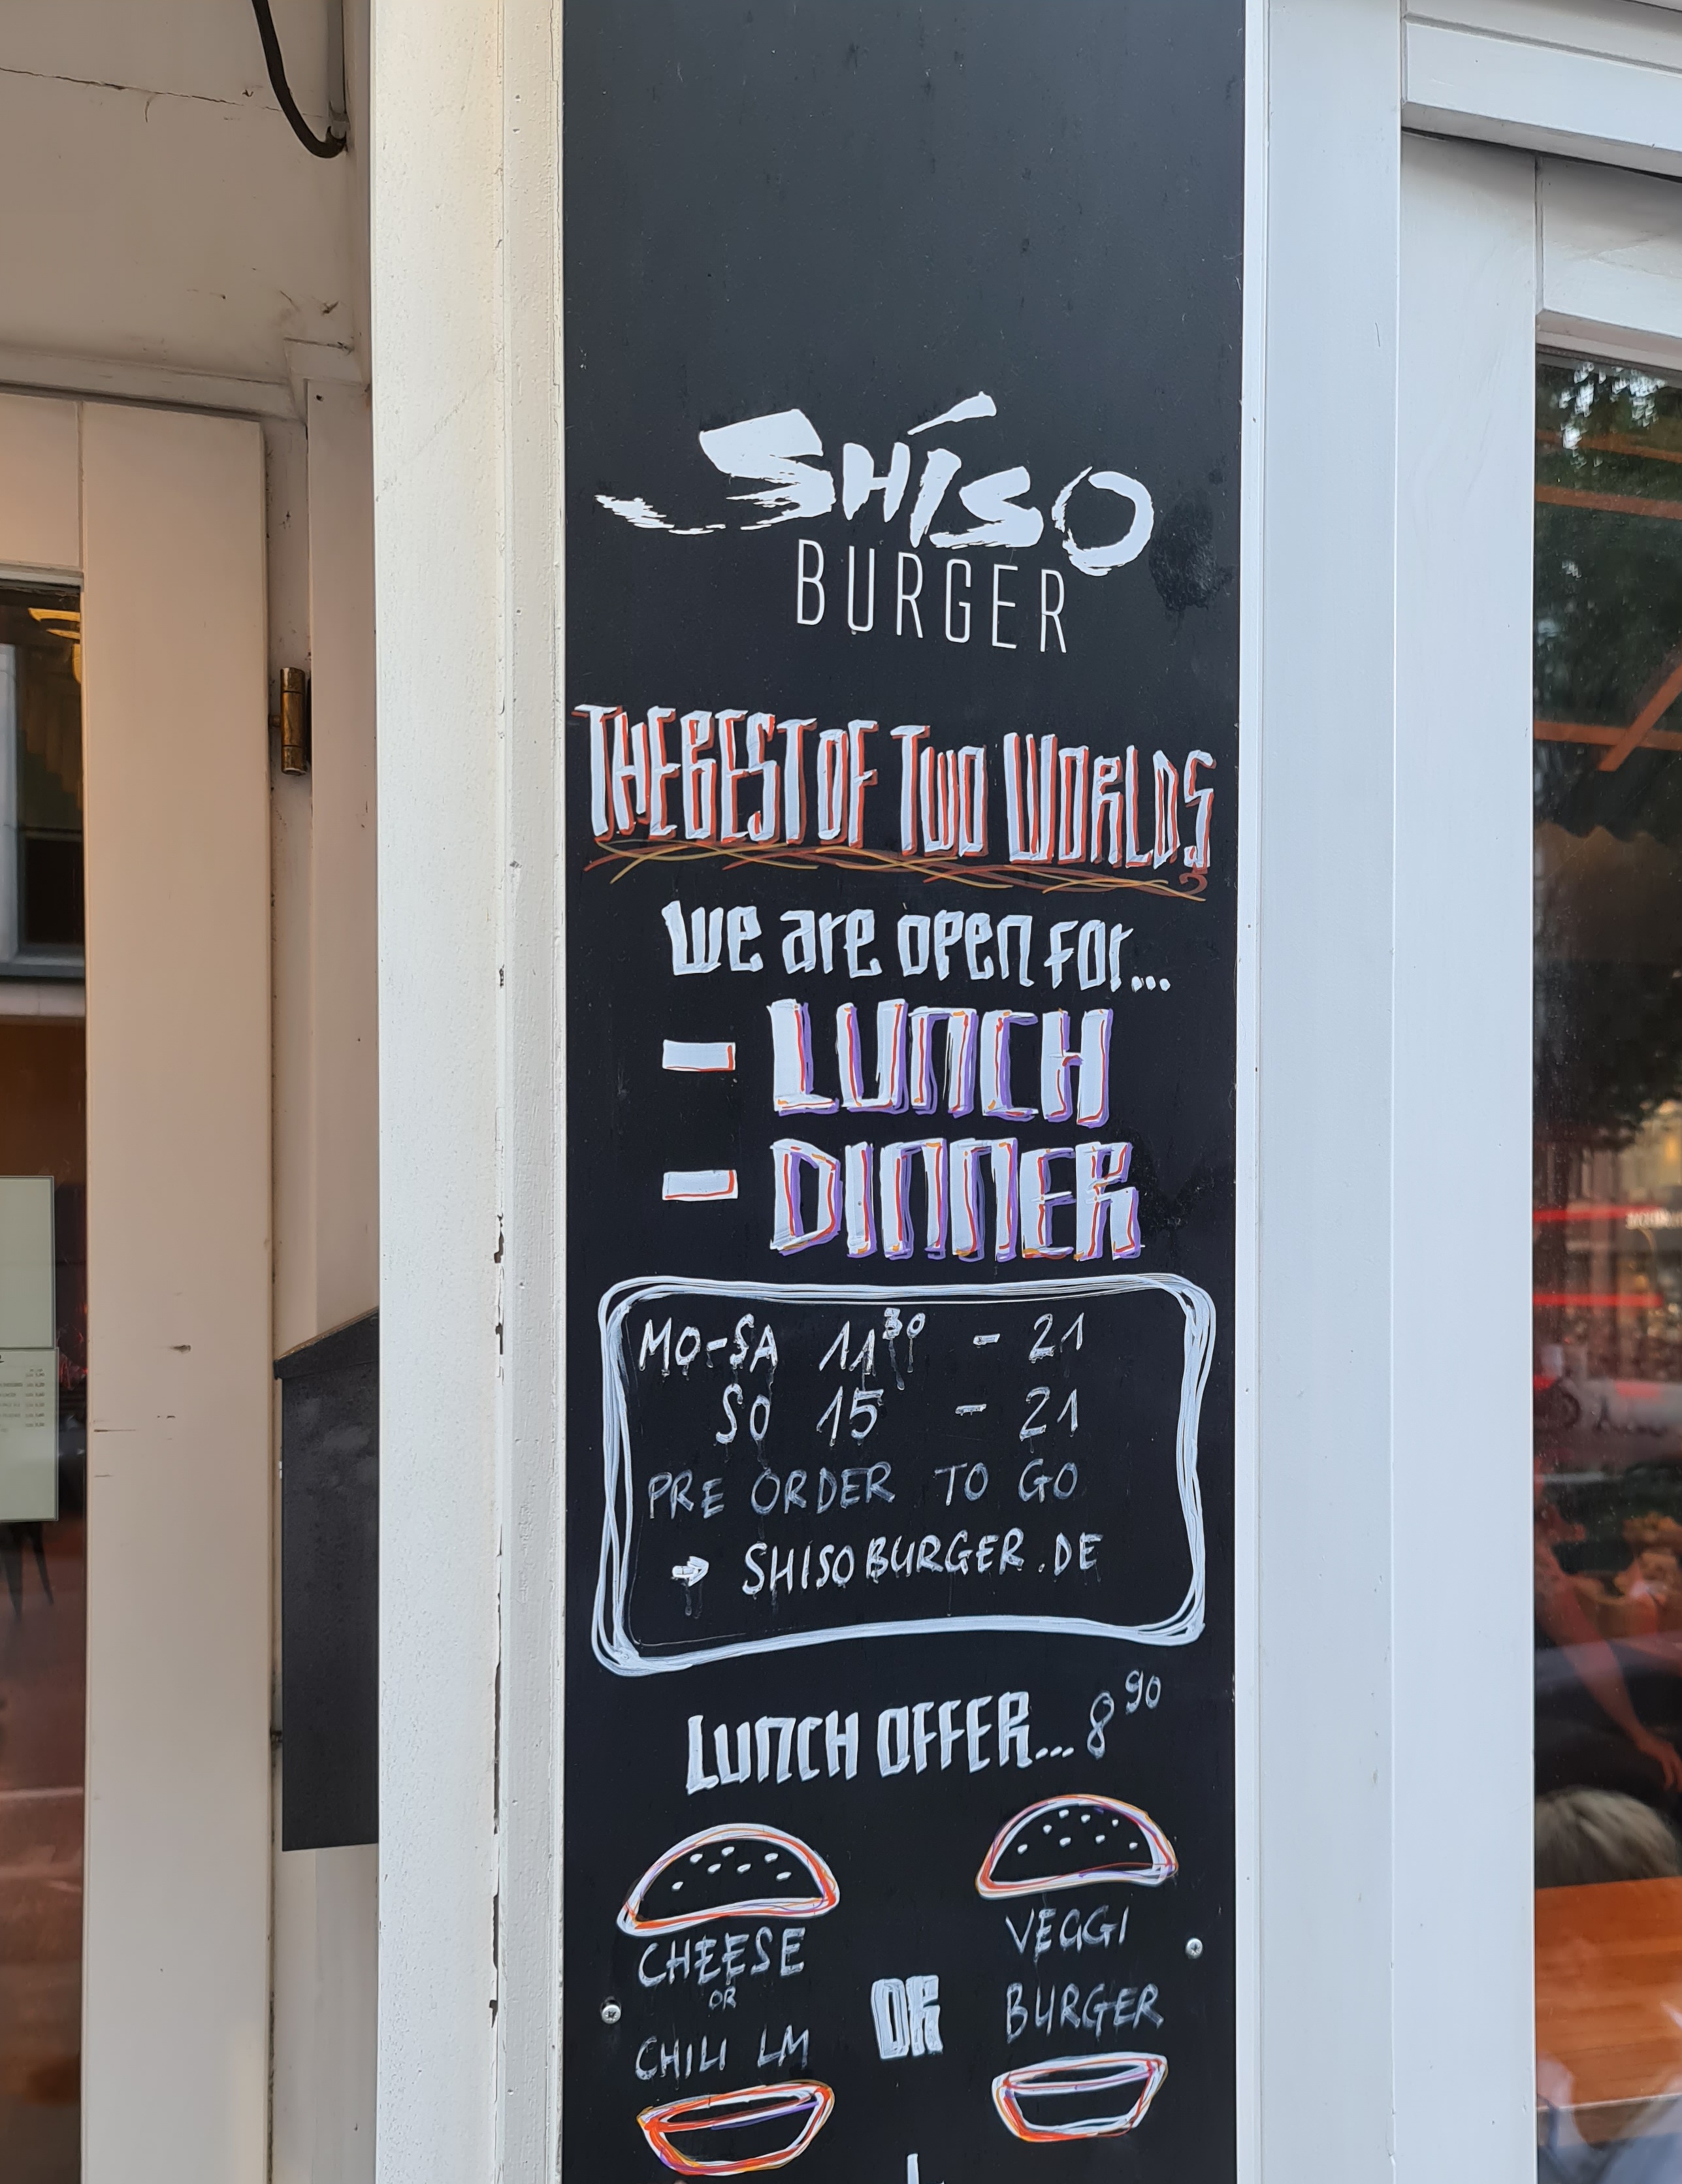 SHISO
BURGER
THE BEST OF TWO WORLDS
We are open for...
- LUNCH
- DINNER
MO-SA 11³⁰ - 21
SO 15 - 21
PRE ORDER TO GO
→ SHISOBURGER.DE
LUNCH OFFER... 8⁹⁰
CHEESE
OR
CHILI LM
OR
VEGGI
BURGER